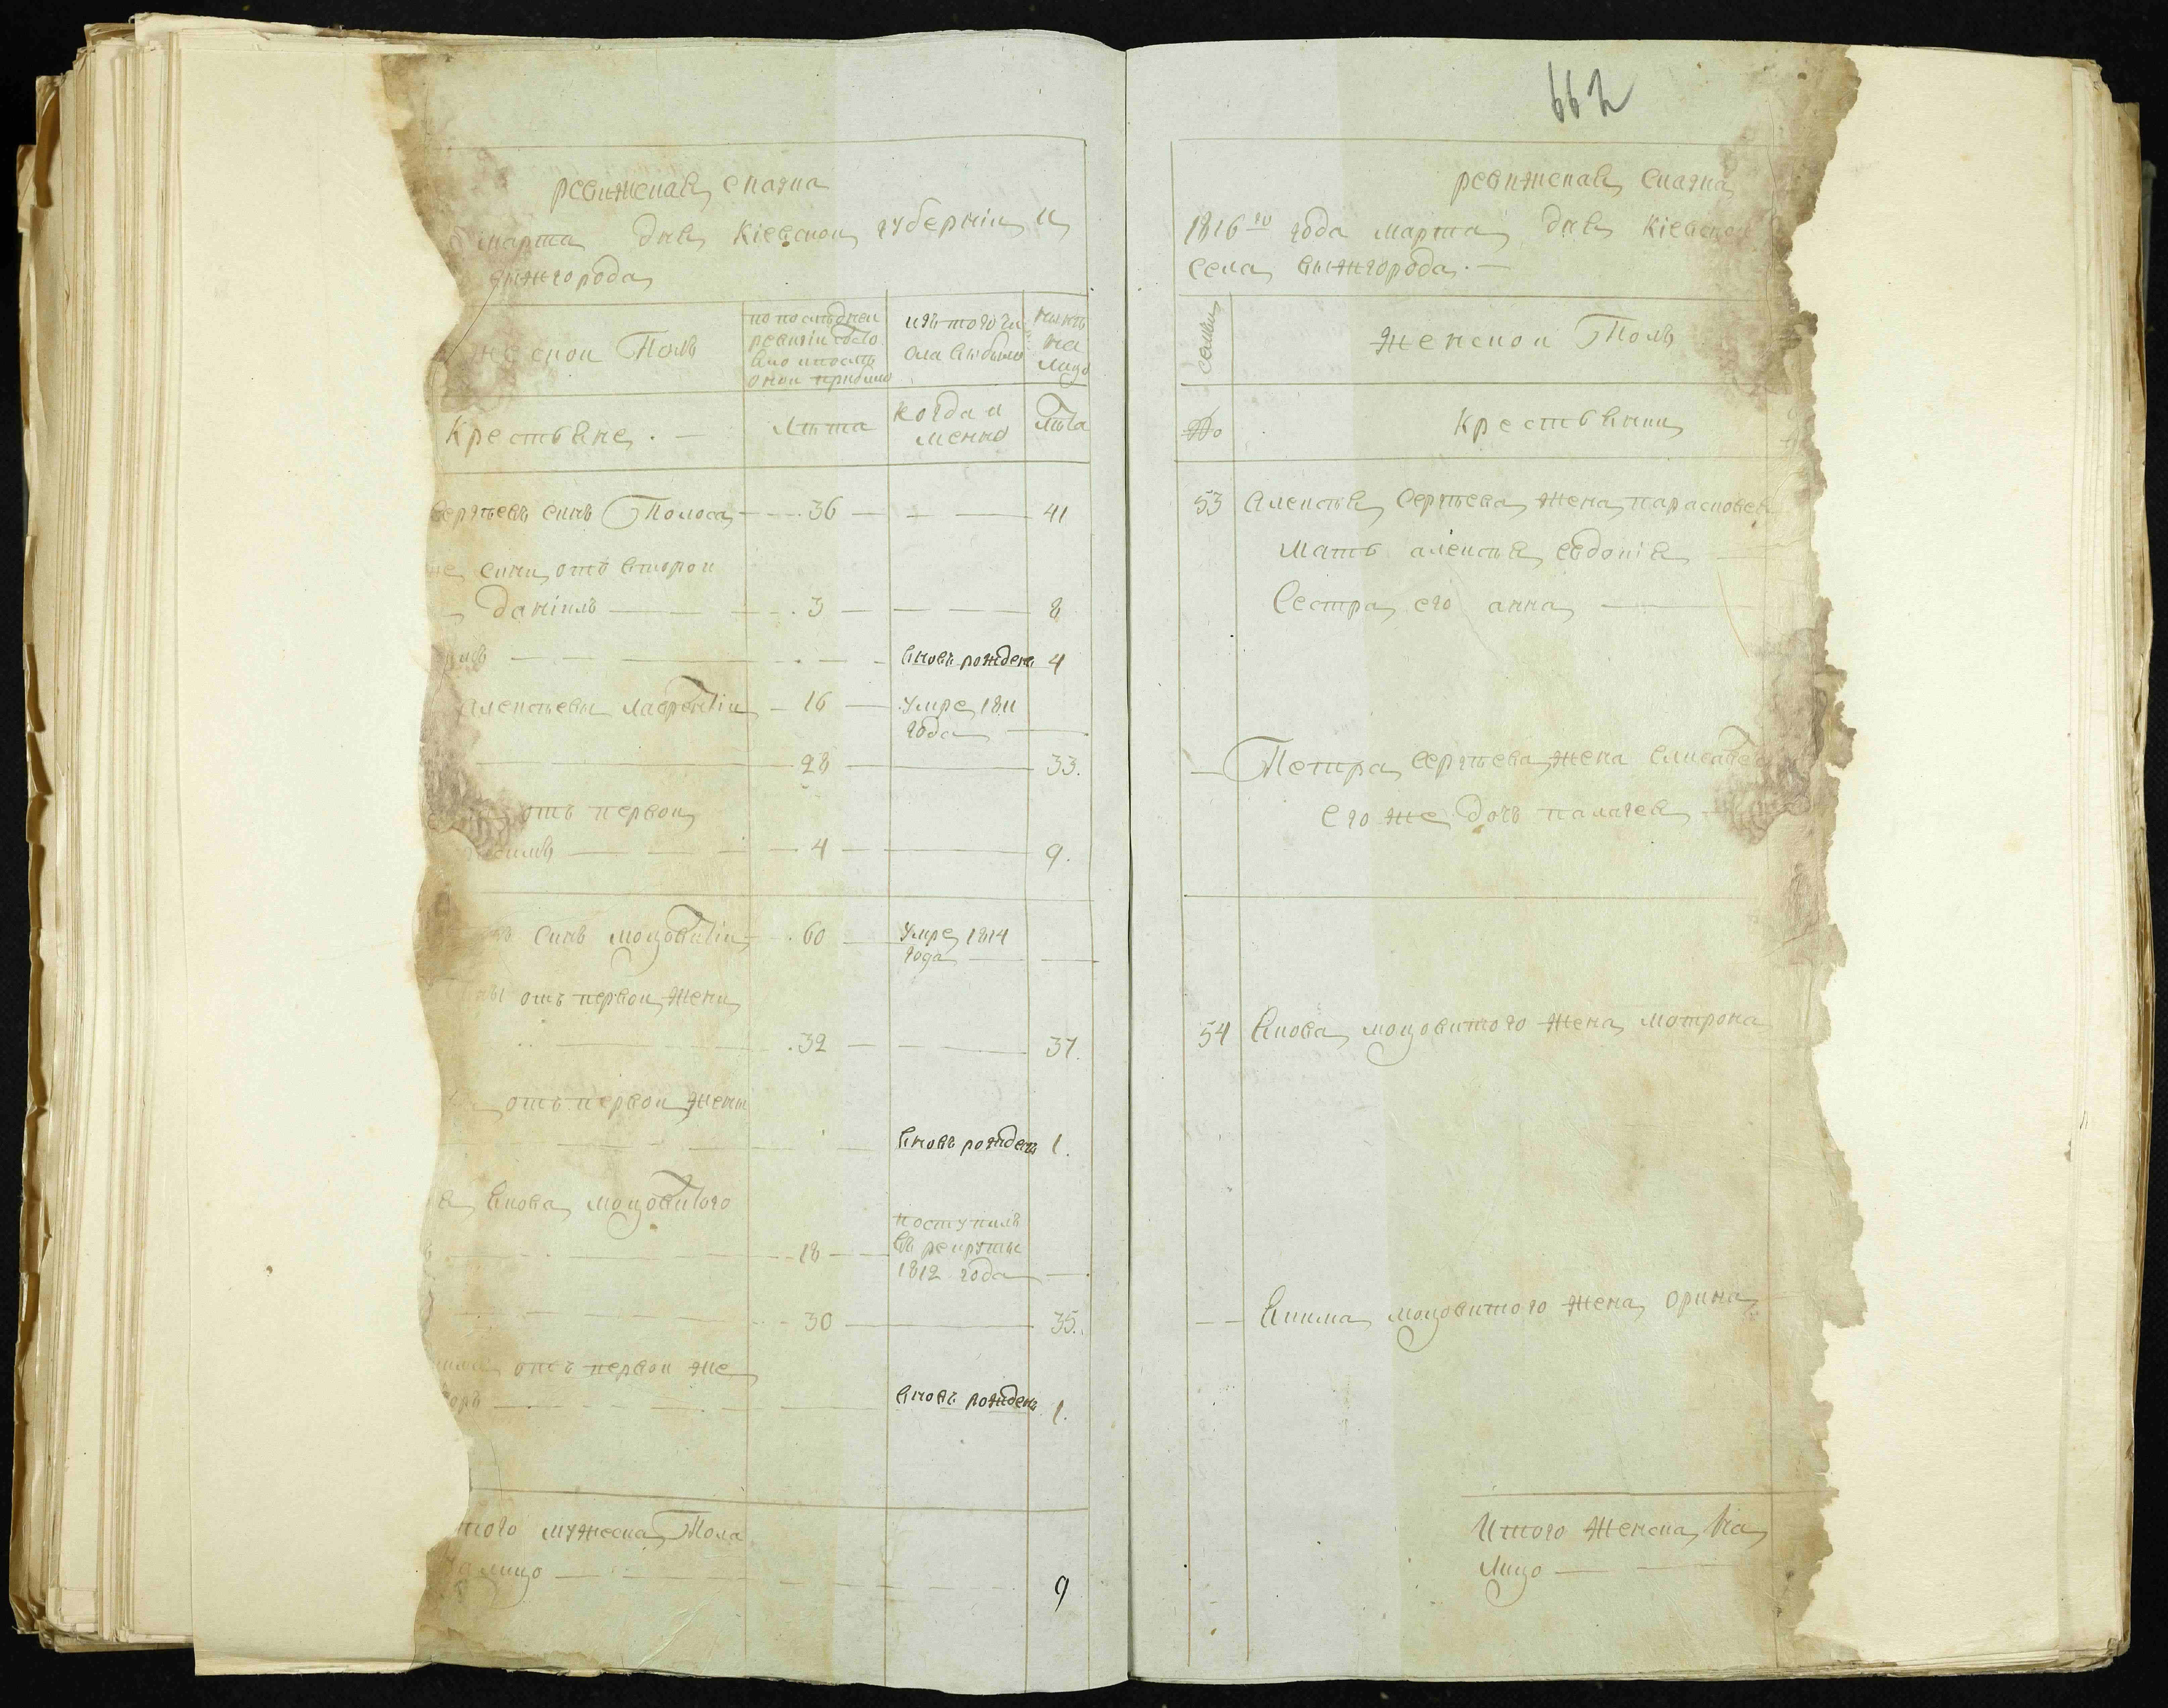 ревижская сказка
марта дня Кіевской губерніи и
вижгорода
жеской Полъ
по последней
ревизіи состо
яло и после
оной прибыло
изъ того чи
сла выбыло
ныне
на
лицо
Крестьяне. —
Лета
когда и
менно
Лета
Сергѣевъ синъ Полоса — 36 — — — 41
сини отъ второй
Даніилъ — 3 — — 8
вновь рожденъ 4
Алексѣевы Лаврентій — 16 — умре 1811
года —
28 — 33.
отъ первой
4 — 9.
синъ моцовитій — 60 — умре 1814
года —
отъ первой жени
32 — 37.
отъ первой жены
вновь рожденъ 1.
Якова моцовитого
18 — поступилъ
въ рекруты
1812 года —
30 — 35.
отъ первой же
вновь рожденъ 1.
того мужеска Пола
на лицо — 9
662
ревижская сказка
1816го года марта дня Кіевской
села вижгорода. —
семьи
женской Полъ
№
Крестьянки
53 Алексѣя Сергѣева жена парасковея
Мать алексѣя евдокія —
Сестра его анна —
— Петра Сергѣева жена Елисавета
его же дочь палагея
54 Якова моцовитого жена мотрона
— Якима моцовитого жена орина
Итого женска на
лицо —